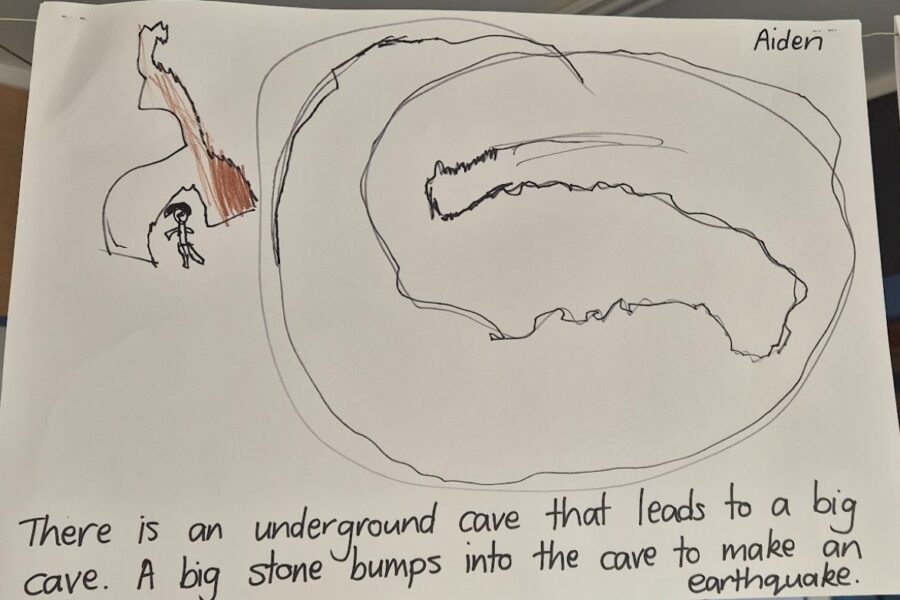 Aiden
There is an underground cave that leads to a big
cave. A big stone bumps into the cave to make an
earthquake.